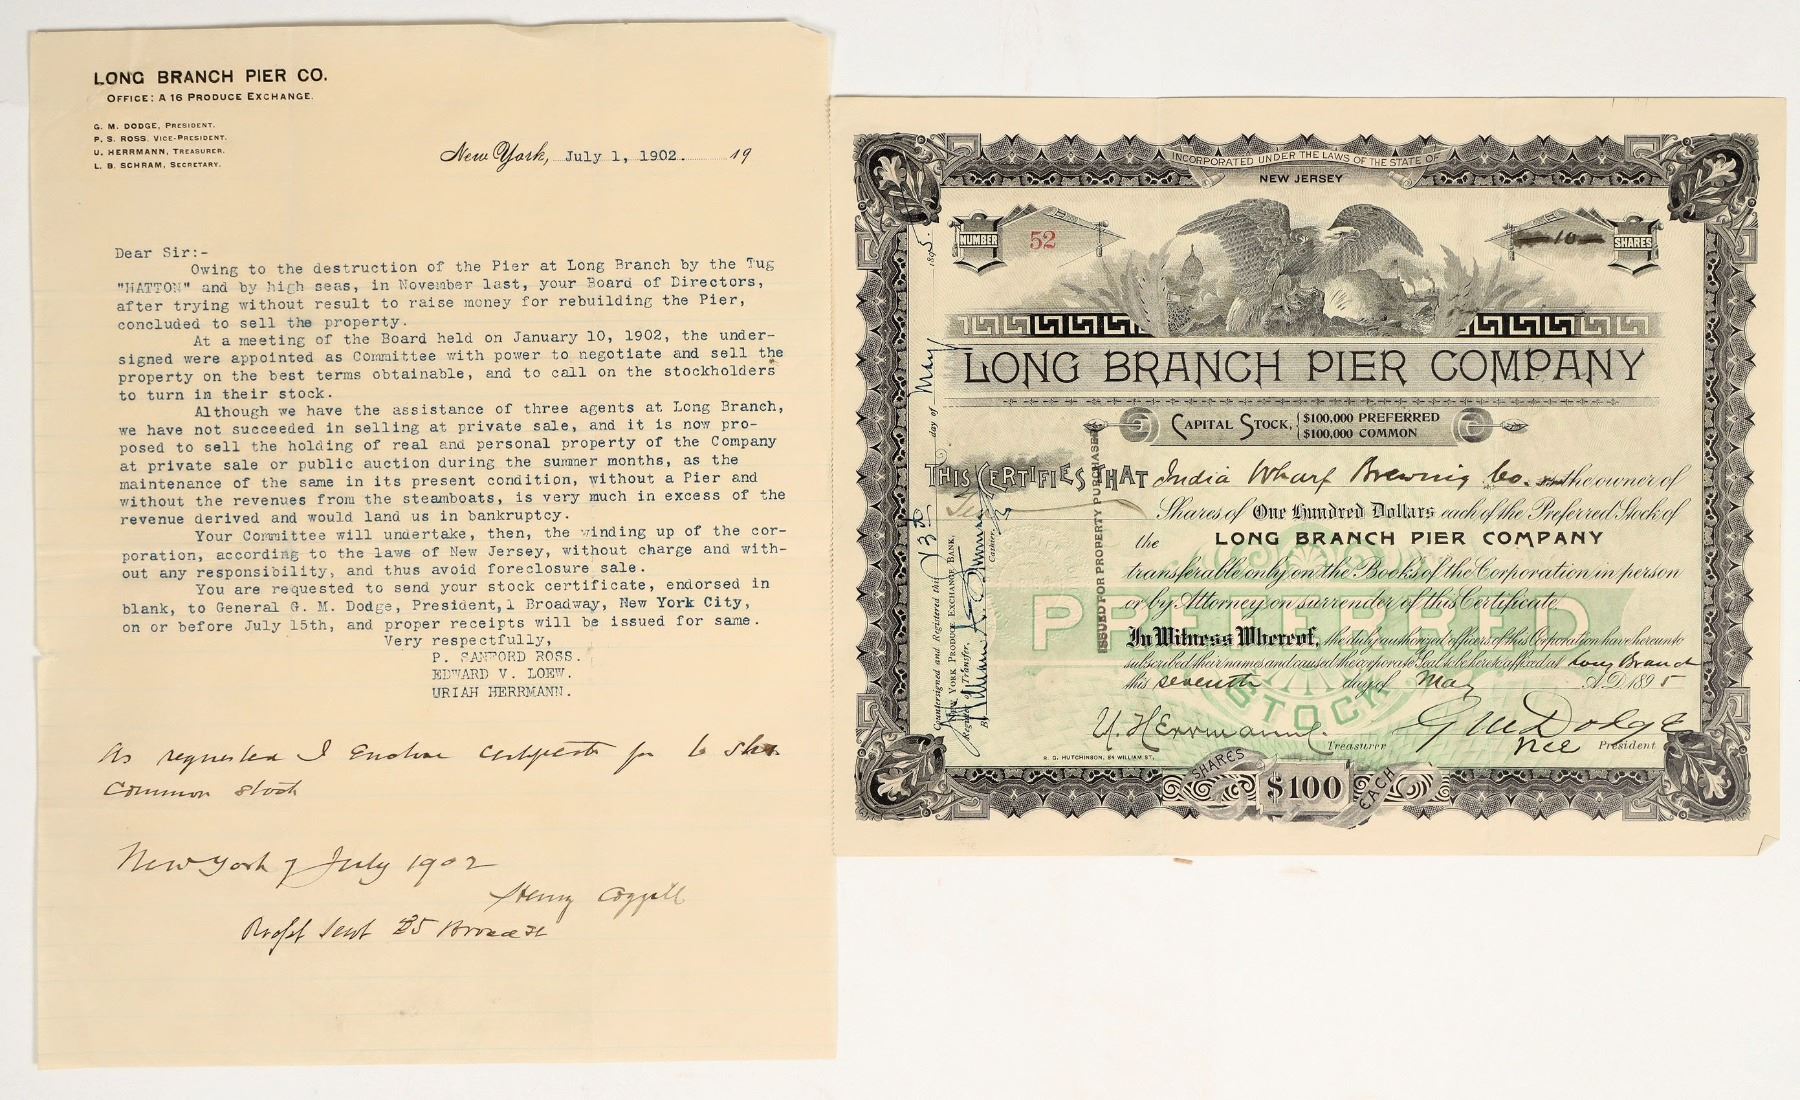 LONG BRANCH PIER CO.
OFFICE: A 16 PRODUCE EXCHANGE.
G. M. DODGE, PRESIDENT.
P. S. ROSS, VICE-PRESIDENT.
U. HERRMANN, TREASURER.
L. B. SCHRAM, SECRETARY.
New York, July 1, 1902. 19
Dear Sir:-
Owing to the destruction of the Pier at Long Branch by the Tug
"HATTON" and by high seas, in November last, your Board of Directors,
after trying without result to raise money for rebuilding the Pier,
concluded to sell the property.
At a meeting of the Board held on January 10, 1902, the under-
signed were appointed as Committee with power to negotiate and sell the
property on the best terms obtainable, and to call on the stockholders
to turn in their stock.
Although we have the assistance of three agents at Long Branch,
we have not succeeded in selling at private sale, and it is now pro-
posed to sell the holding of real and personal property of the Company
at private sale or public auction during the summer months, as the
maintenance of the same in its present condition, without a Pier and
without the revenues from the steamboats, is very much in excess of the
revenue derived and would land us in bankruptcy.
Your Committee will undertake, then, the winding up of the cor-
poration, according to the laws of New Jersey, without charge and with-
out any responsibility, and thus avoid foreclosure sale.
You are requested to send your stock certificate, endorsed in
blank, to General G. M. Dodge, President, 1 Broadway, New York City,
on or before July 15th, and proper receipts will be issued for same.
Very respectfully,
P. SANFORD ROSS.
EDWARD V. LOEW.
URIAH HERRMANN.
As requested I Enclose Certificate for 6 Shs
Common Stock
New York 7 July 1902
Henry
Sent 25 Broad St
INCORPORATED UNDER THE LAWS OF THE STATE OF
NEW JERSEY
NUMBER 52
10 SHARES
LONG BRANCH PIER COMPANY
CAPITAL STOCK, $100,000 PREFERRED
$100,000 COMMON
THIS CERTIFIES THAT India Wharf Brewing Co. the owner of
Ten
Shares of One Hundred Dollars each of the Preferred Stock of
the LONG BRANCH PIER COMPANY
transferable only on the Books of the Corporation in person
or by Attorney on surrender of this Certificate.
PREFERRED
STOCK
In Witness Whereof, the duly authorized officers of this Corporation have hereunto
subscribed their names and caused the corporate Seal to be hereto affixed at Long Branch
this seventh day of May A.D. 1895
U. Herrmann Treasurer
G M Dodge
Vice President
R. G. HUTCHINSON, 84 WILLIAM ST.
SHARES $100 EACH
ISSUED FOR PROPERTY PURCHASED
Countersigned and Registered this day of May 1895
NEW YORK PRODUCE EXCHANGE BANK,
Registrar of Transfer,
By William A. Cashier